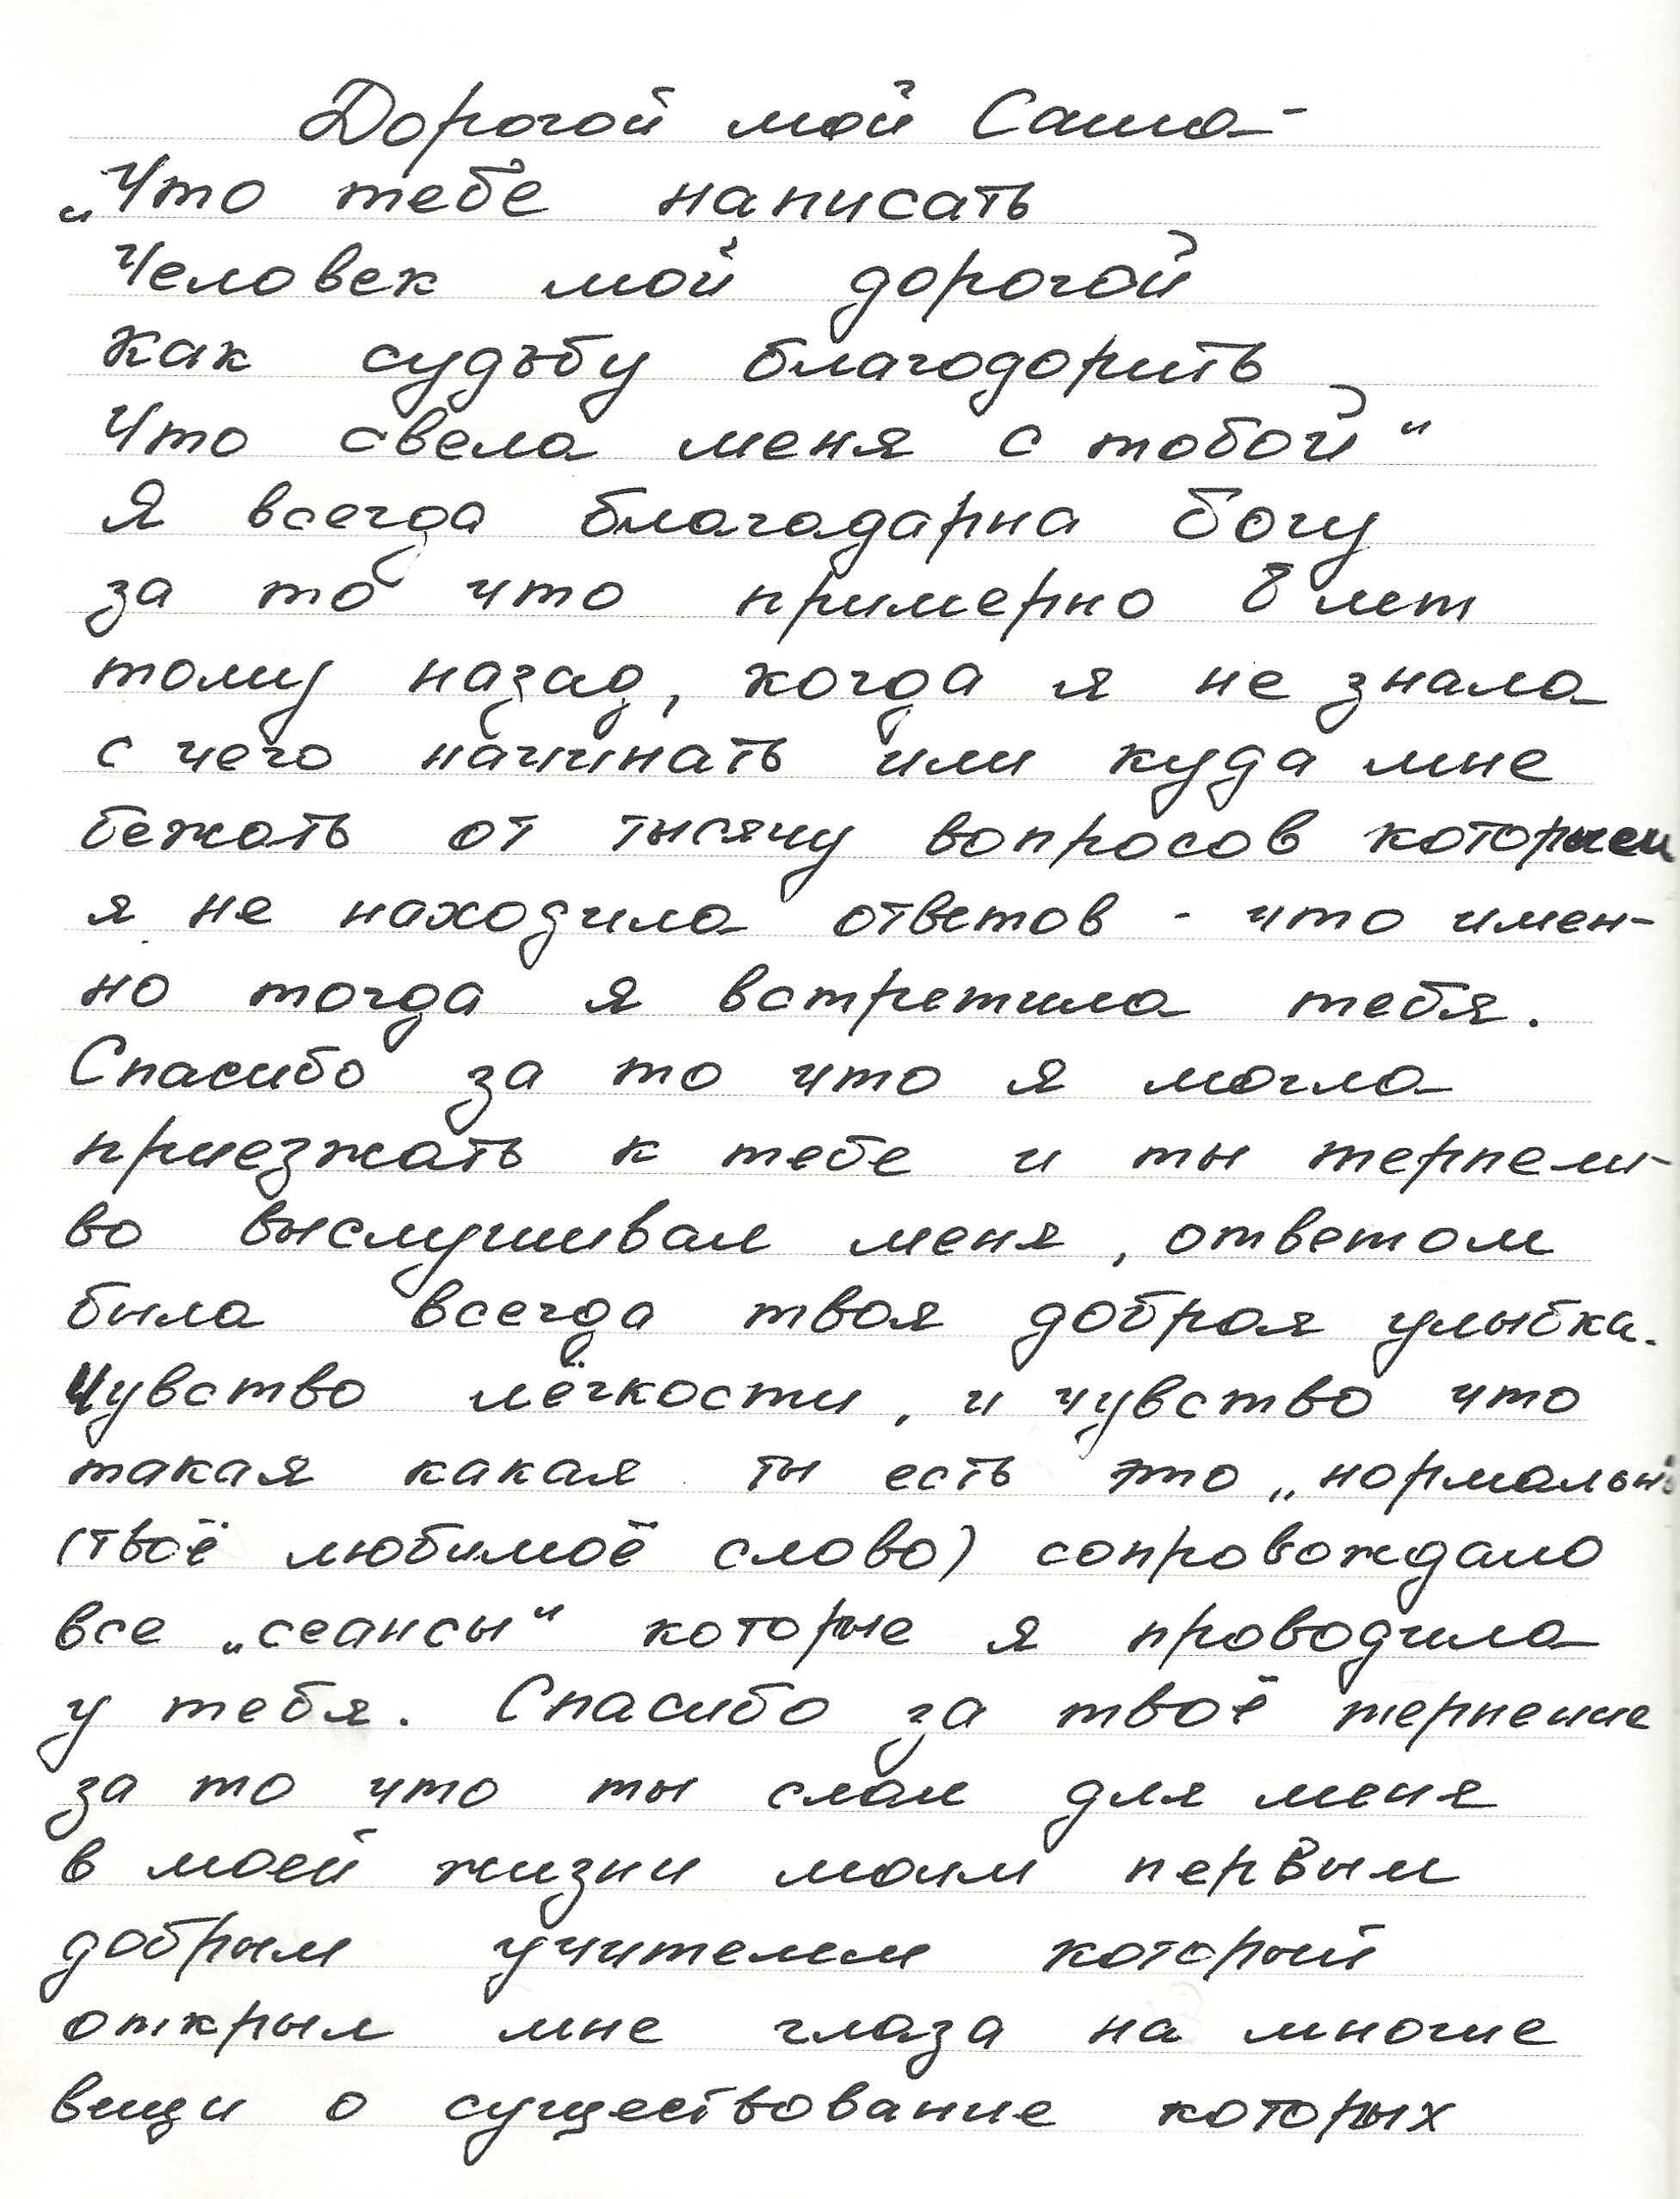 Дорогой мой Саша-
„Что тебе написать
Человек мой дорогой
Как судьбу благодорить
Что свела меня с тобой“
Я всегда благодарна богу
за то что примерно 8 лет
тому назад, когда я не знала
с чего начинать или куда мне
бежать от тысячу вопросов которым
я не находила ответов - что имен-
но тогда я встретила тебя.
Спасибо за то что я могла
приезжать к тебе и ты терпели-
во выслушивал меня, ответом
была всегда твоя добрая улыбка.
Чувство лёгкости, и чувство что
такая какая ты есть это „нормально
(твоё любимоё слово) сопровождало
все „сеансы“ которые я проводила
у тебя. Спасибо за твоё терпение
за то что ты слал для меня
в моей жизни моим первым
добрым учителем который
открыл мне глаза на многие
вещи о существование которых